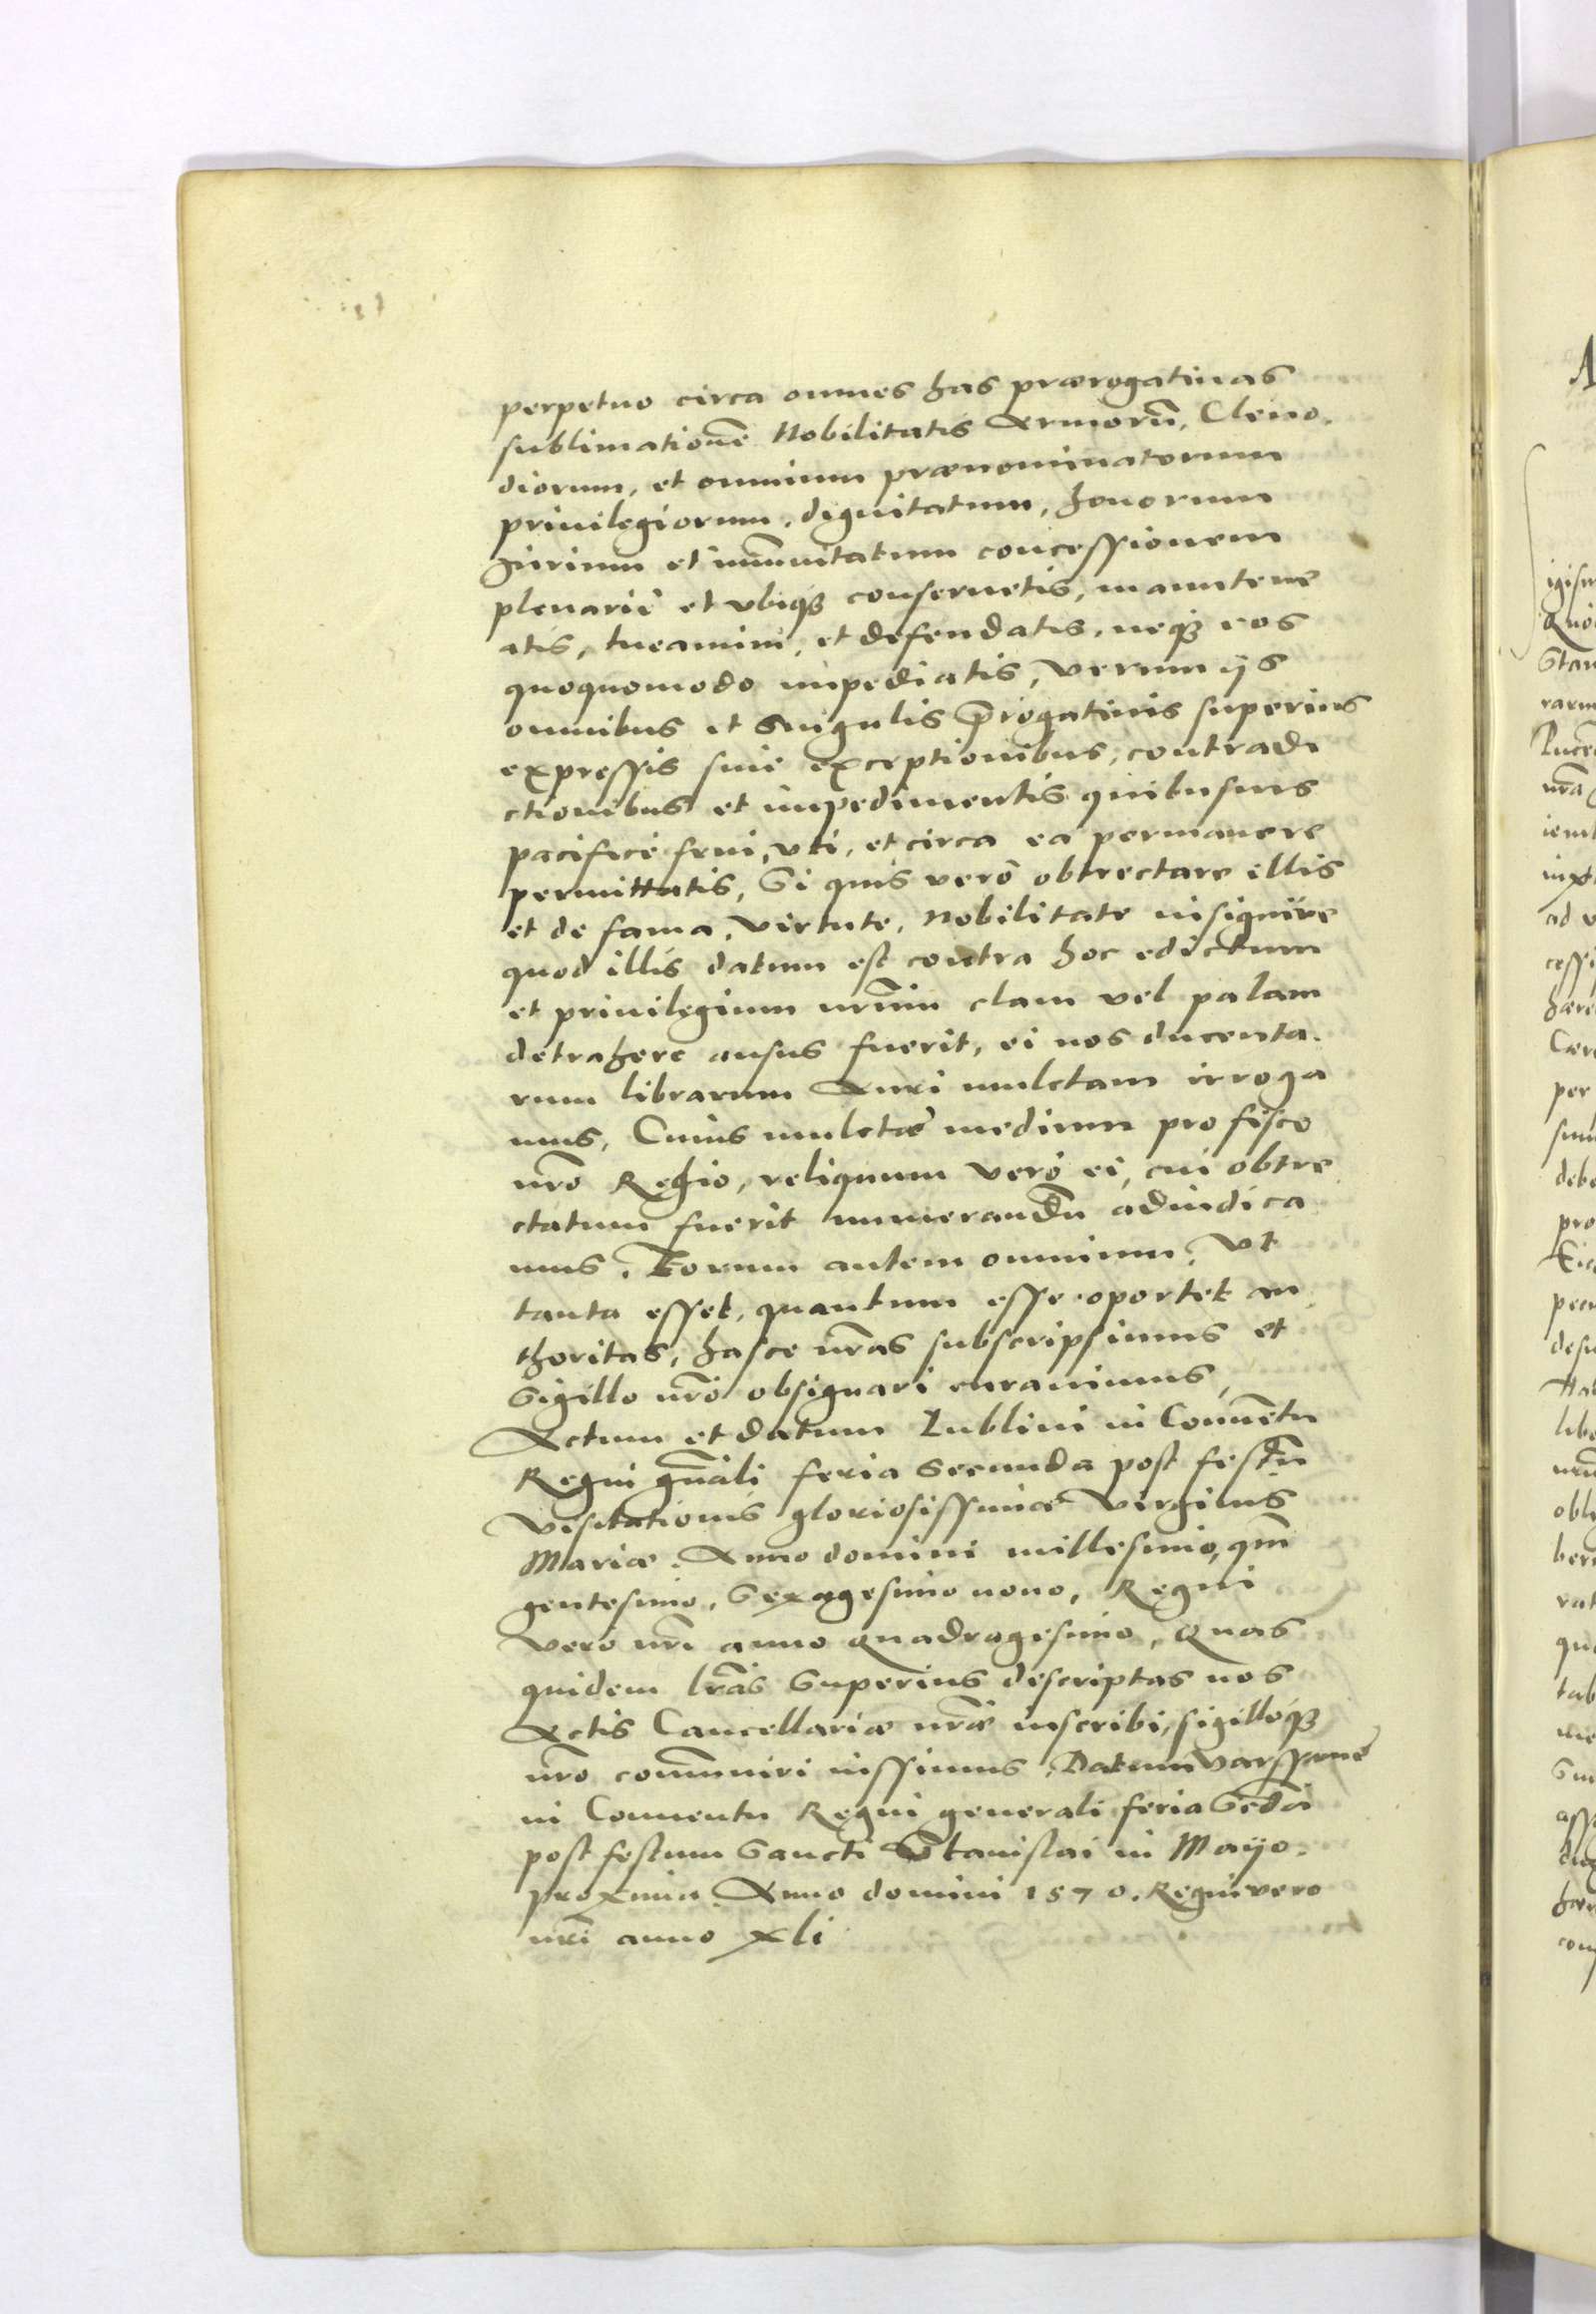 perpetuo circa omnes has prærogatiuas
sublimationē Nobilitatis Armorū, Cleno.
diorum, et omnium prænominatorum
priuilegiorum, dignitatum, honorum
jurium et im̄unitatum concessionem
plenariè et vbiqꝫ conseruetis, manutene
atis, tueamini, et defendatis, neqꝫ eos
quoquomodo impediatis, verum ijs
omnibus et singulis p̄rogatiuis superius
expressis sine exceptionibus, contradi
ctionibus et impedimentis quibusuis
pacificè frui, vti, et circa ea permanere
permittatis, Si quis verò obtrectare illis
et de fama, virtute, Nobilitate insigniue
quod illis datum est contra hoc edictum
et priuilegium nrūm clam vel palam
detrahere ausus fuerit, ei nos ducenta.
rum librarum Auri mulctam irroga
mus, Cuius mulctæ medium pro fisco
nrō Regio, reliquum verò ei, cui obtre
ctatum fuerit numerandū adiudica
mus. Eorum autem omnium, vt
tanta esset, quantum esse oportet au
thoritas, hasce nrās subscripsimus et
Sigillo nrō obsignari curauimus,
Actum et datum Lublini in Conuētu
Regni gn̄ali feria Secunda post festū
Visitationis gloriosissimæ Virginis
Mariæ. Anno domini millesimo, qūi
gentesimo, Sexagesimo nono, Regni
Verò nrī anno quadragesimo, Quas
quidem lrās Superius descriptas nos
Actis Cancellariæ nrǣ inscribi, sigilloqꝫ
nrō com̄uniri iussimus, Datum Varssauiæ
in Conuentu Regni generali feria Scdā
post festum Sancti Stanislai in Mayo.
proxima Anno domini 1570. Regni vero
nrī anno xli